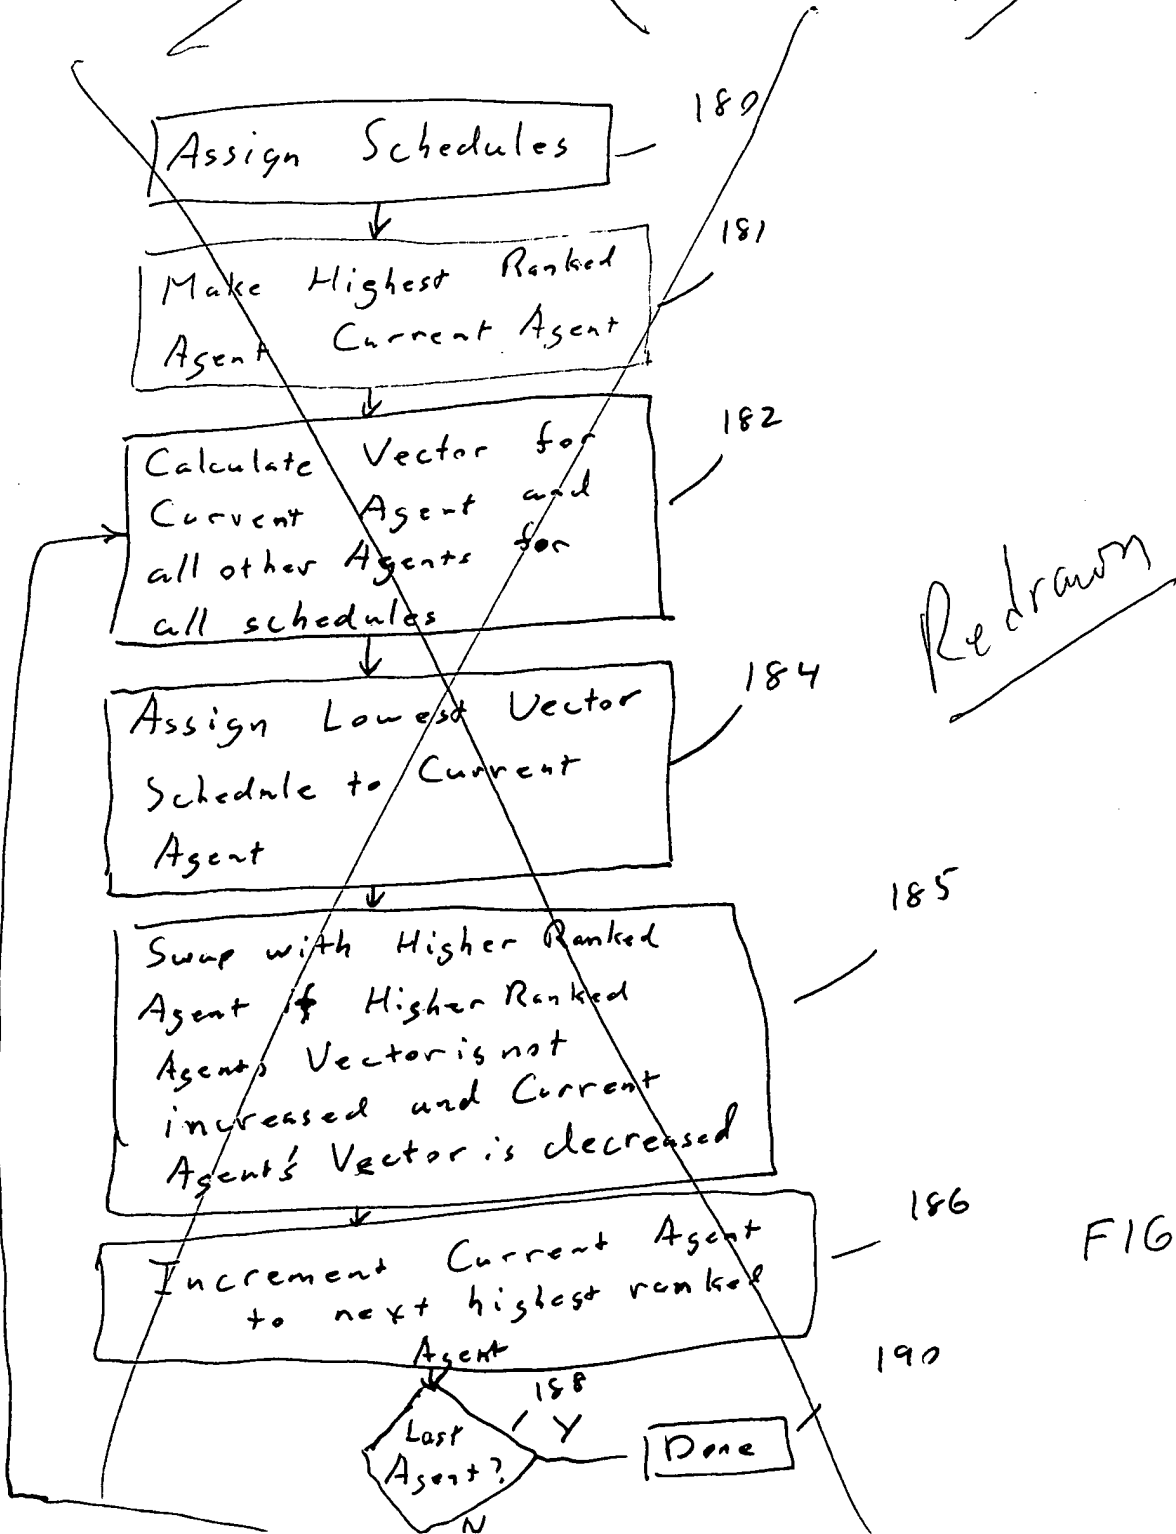 180
Assign Schedules
181
Make Highest Ranked
Agent Current Agent
182
Calculate Vector for
Current Agent and
all other Agents for
all schedules
Redrawn
184
Assign Lowest Vector
Schedule to Current
Agent
185
Swap with Higher Ranked
Agent if Higher Ranked
Agents Vector is not
increased and Current
Agent's Vector is decreased
186
FIG
Increment Current Agent
to next highest ranked
Agent
190
188
Last
Agent?
Y
Done
N